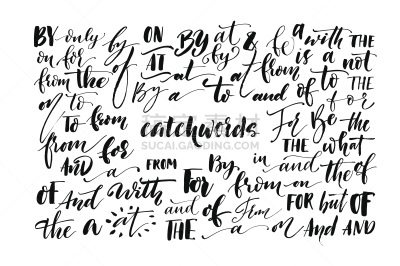 BY only by ON By at & fe a with THE
on for of AT by from is a not
from the at to at of to THE
m to By a to and of for
To from catchwords Fr Be the
搞定素材网
SUCAI.GAODING.COM
from for THE what
AND a FROM By in and the of
OF And With For from on
and of Frm FOR but OF
the a at THE a m And AND